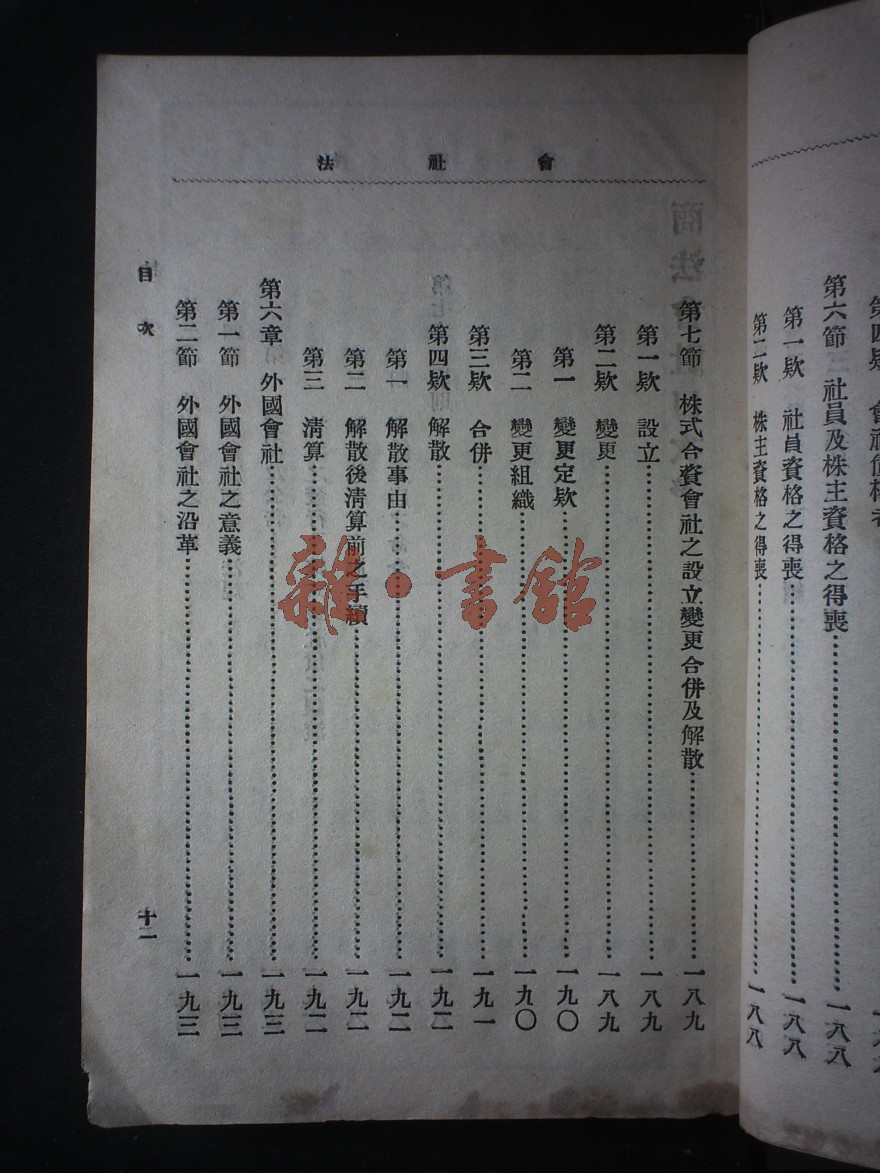 第六節 社員及株主資格之得喪……一八八
第一欵 社員資格之得喪……一八八
第二欵 株主資格之得喪……一八八
會社法
第七節 株式合資會社之設立變更合併及解散……一八九
第一欵 設立……一八九
第二欵 變更……一八九
第一 變更定欵……一九〇
第二 變更組織……一九〇
第三欵 合併……一九一
第四欵 解散……一九二
第一 解散事由……一九二
第二 解散後清算前之手續……一九二
第三 清算……一九二
第六章 外國會社……一九三
第一節 外國會社之意義……一九三
第二節 外國會社之沿革……一九三
目次
十二
雜·書館